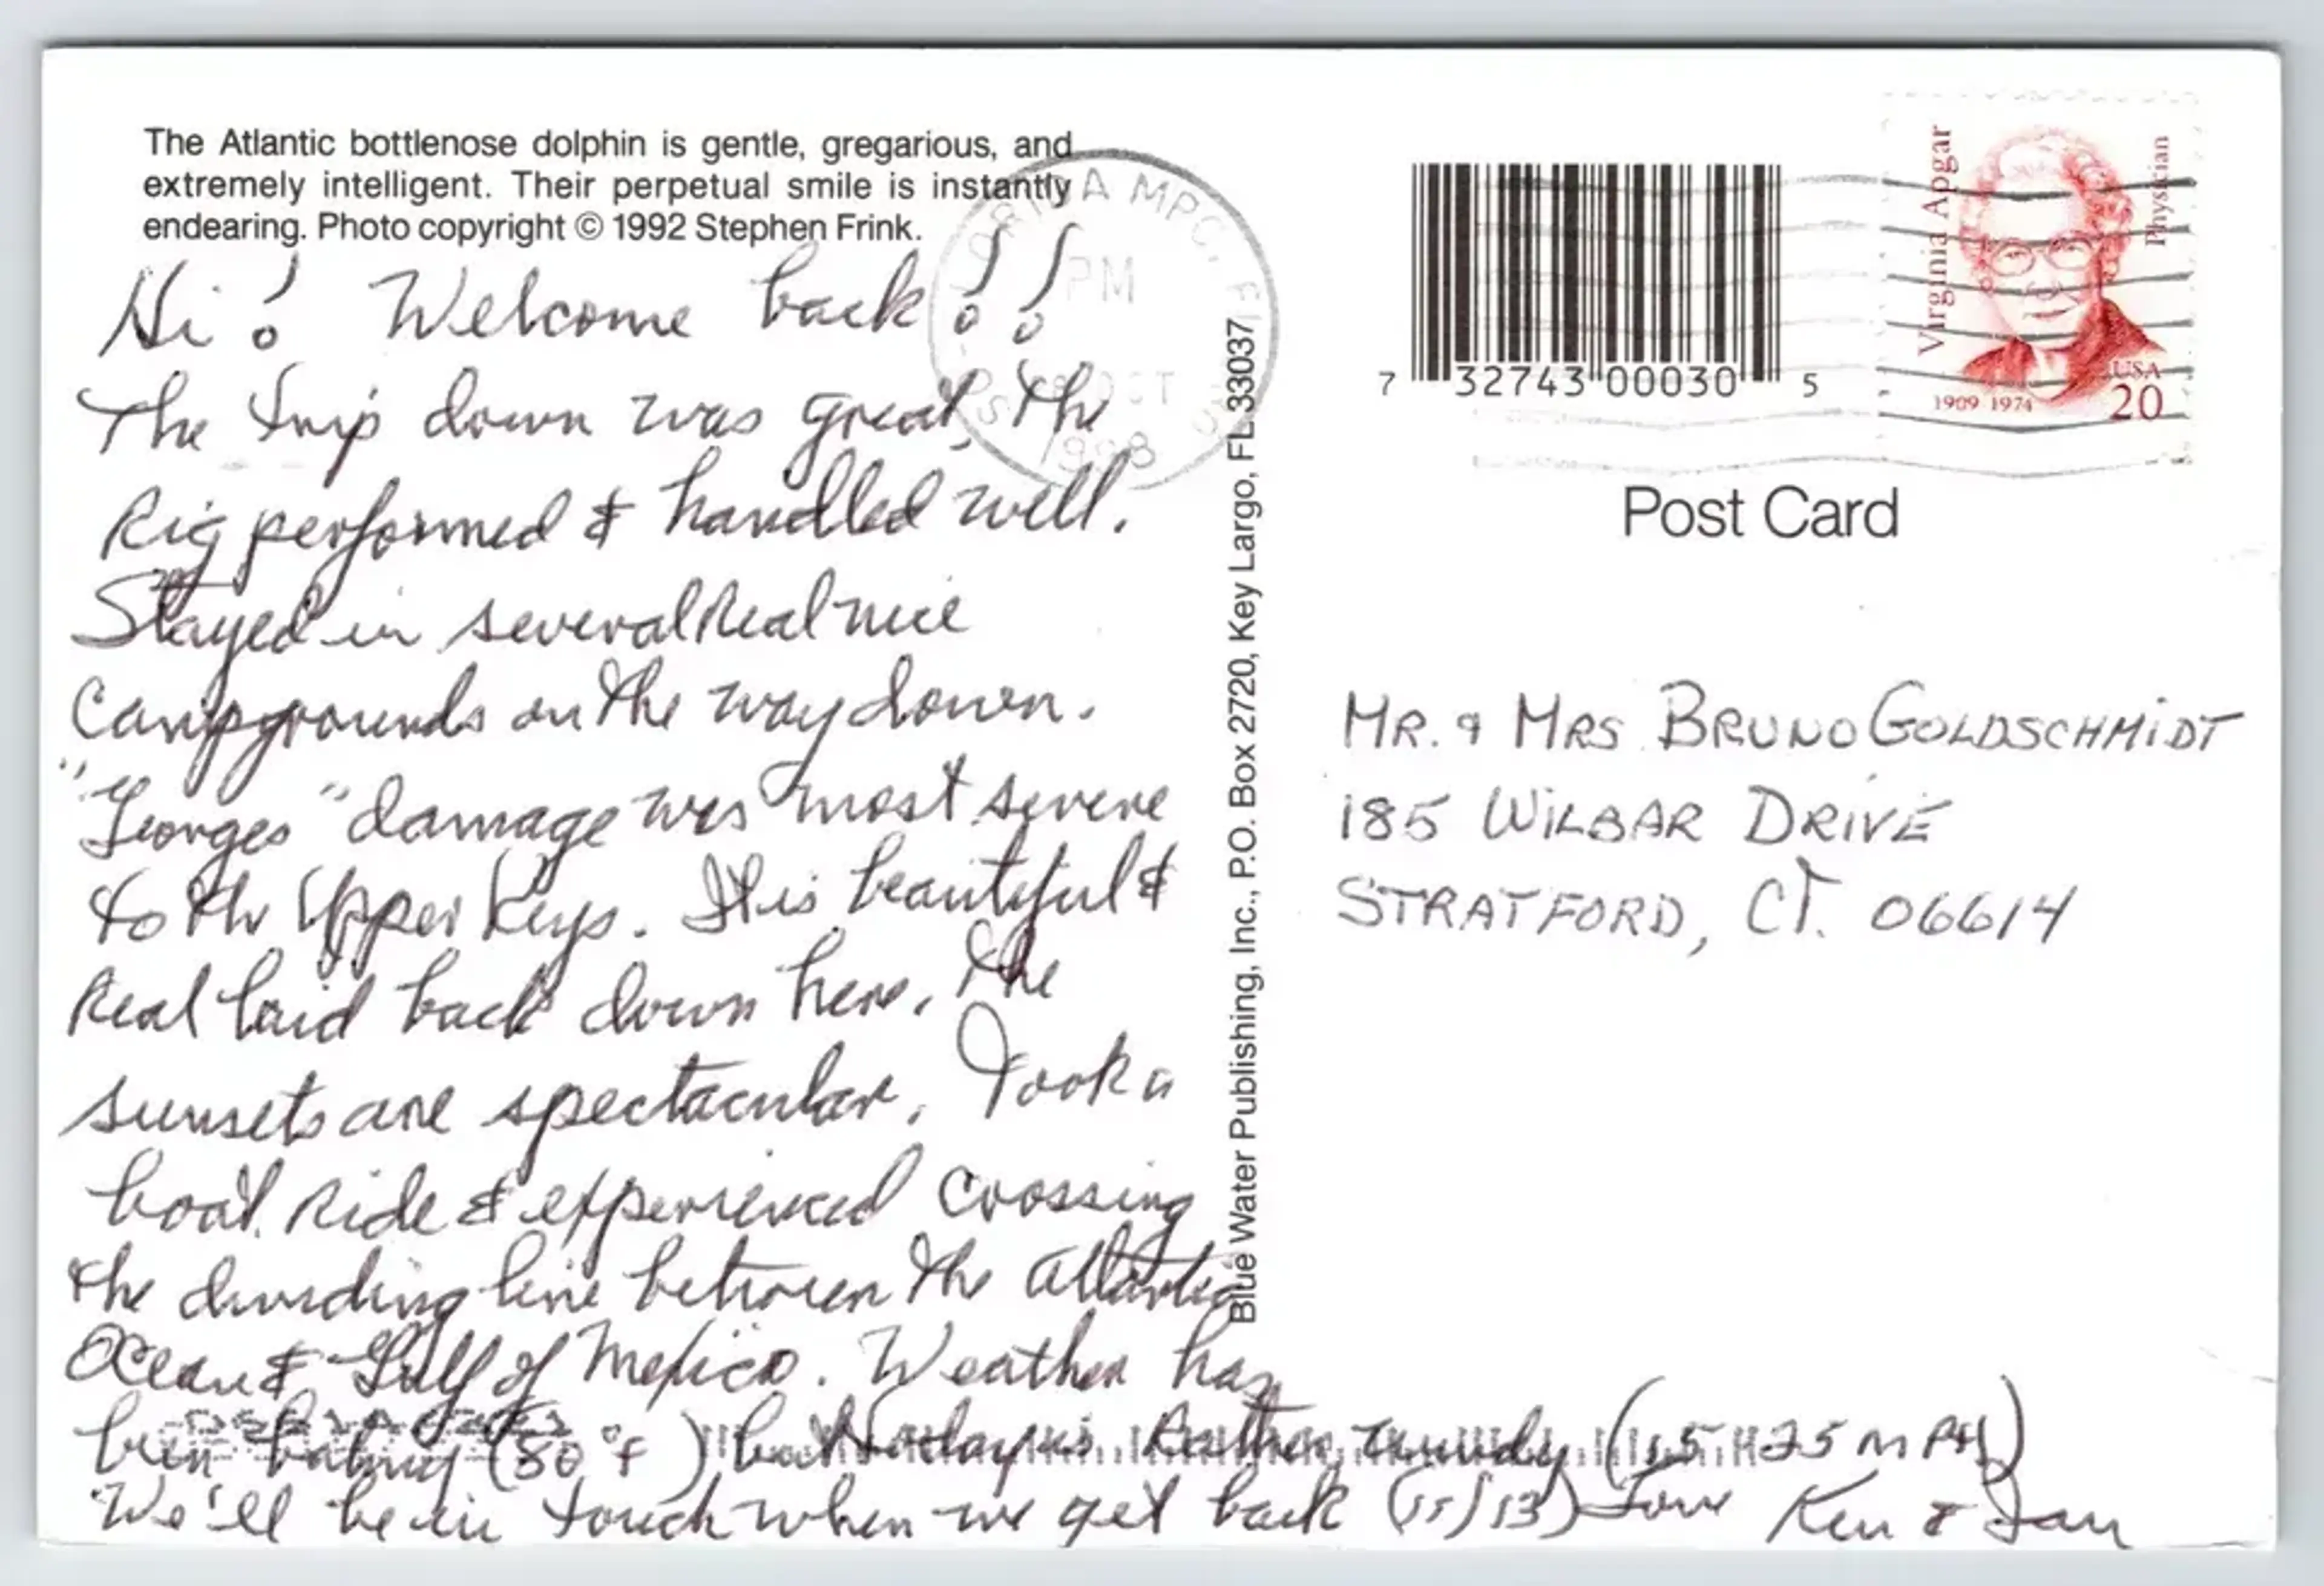 The Atlantic bottlenose dolphin is gentle, gregarious, and
extremely intelligent. Their perpetual smile is instantly
endearing. Photo copyright © 1992 Stephen Frink.
Hi! Welcome back!!
The trip down was great, the
Rig performed & handled well.
Stayed in several Real nice
Campgrounds on the way down.
"Georges" damage was most severe
to the Upper Keys. It is beautiful &
Real laid back down here. The
sunsets are spectacular. Took a
boat Ride & experienced crossing
the dividing line between the Atlantic
Ocean & Gulf of Mexico. Weather has
been balmy (80°F) but today is Rather windy (15-25 MPH)
We'll be in touch when we get back (11/13) Love Ken & Jan
Blue Water Publishing, Inc., P.O. Box 2720, Key Largo, FL 33037
MPC, FL
PM
OCT
1998
7 32743 00030 5
Virginia Apgar
Physician
1909 1974
USA
20
Post Card
MR. & MRS BRUNO GOLDSCHMIDT
185 WILBAR DRIVE
STRATFORD, CT. 06614